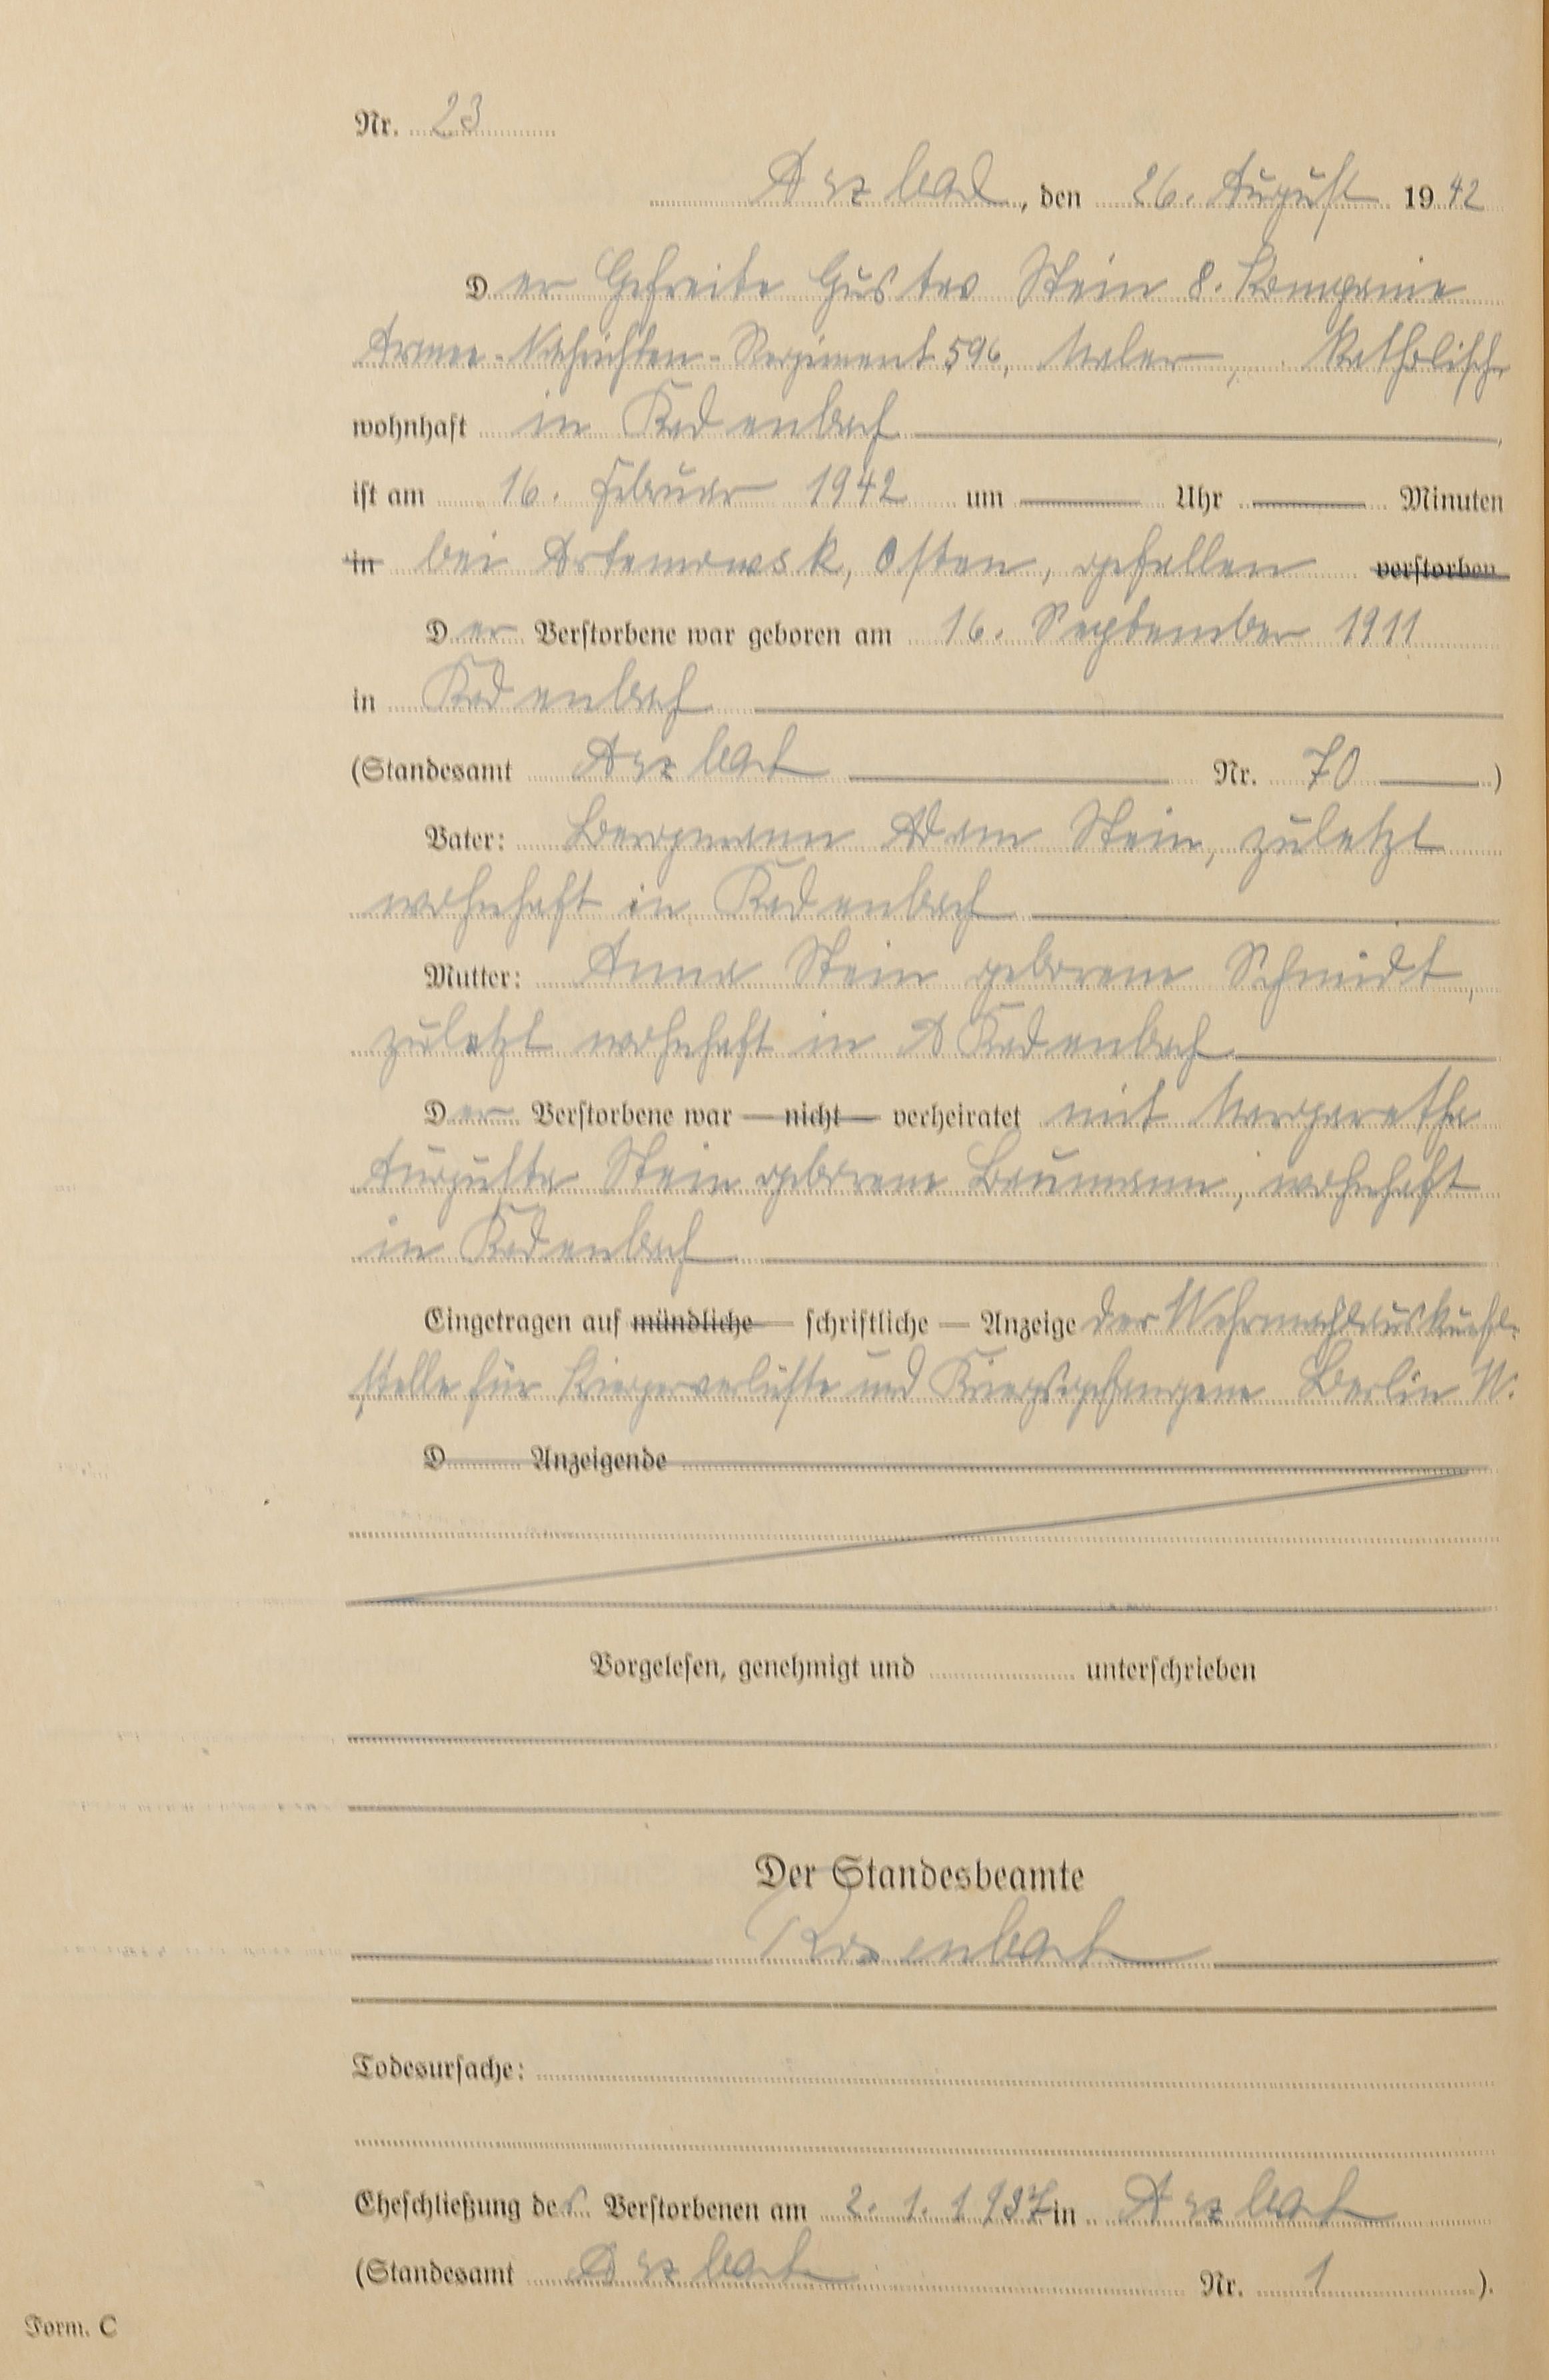 Nr. 23
Arzbach, den 26. August 1942
Der Gefreite Gustav Stein 8. Kompanie
Armee-Nachrichten-Regiment 596, Maler, Katholisch,
wohnhaft in Kadenbach
ist am 16. Februar 1942 um Uhr Minuten
in bei Artemowsk, Osten, gefallen verstorben
Der Verstorbene war geboren am 16. September 1911
in Kadenbach
(Standesamt Arzbach Nr. 70 )
Vater: Bergmann Adam Stein, zuletzt
wohnhaft in Kadenbach
Mutter: Anna Stein geborene Schmidt,
zuletzt wohnhaft in A Kadenbach
Der Verstorbene war — nicht — verheiratet mit Margaretha
Augusta Stein geborene Baumann, wohnhaft
in Kadenbach
Eingetragen auf mündliche — schriftliche — Anzeige der
stelle für Kriegerverluste und Kriegsgefangene Berlin W.
D Anzeigende
Vorgelesen, genehmigt und unterschrieben
Der Standesbeamte
Todesursache:
Eheschließung des Verstorbenen am 2. 1. 1937 in Arzbach
(Standesamt Arzbach Nr. 1 ).
Form. C